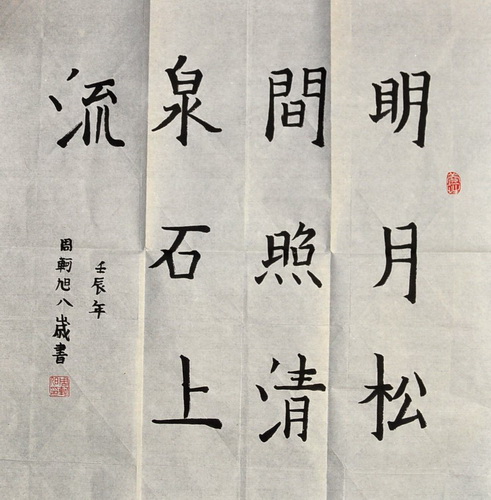 明月松
間照清
泉石上
流
壬辰年
周軒旭八歲書